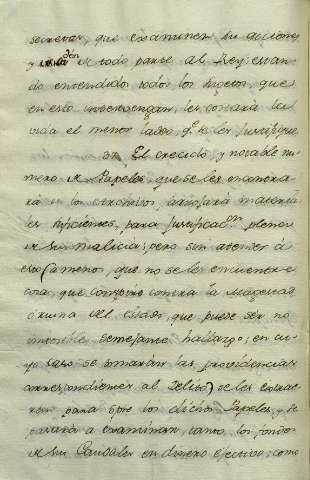 secretas, que examinen su acciones
y den de todo parte al Rey; estan-
do entendidos todos los sugetos, que
en esto intervengan, les costará la
vida el menor ladeo, qe. se les justifique
37. El crecido, y notable nu-
mero de Papeles, que se les encontra-
rá en los Archivos, arrojará materia-
les suficientes para justificacon. plena
de su malicia; pero sin atender á
esto (a menos, que no se les encuentre
cosa, que conspire contra la Magestad
ó ruina del Estado, que puede ser no
imposible semejante hallazgo; en cu-
yo caso se tomarán las providencias
correspondientes al Delito) se les
para los dichos Papeles, y se
pasará á examinar, tanto los fondos
de sus Caudales en dinero efectivo, como